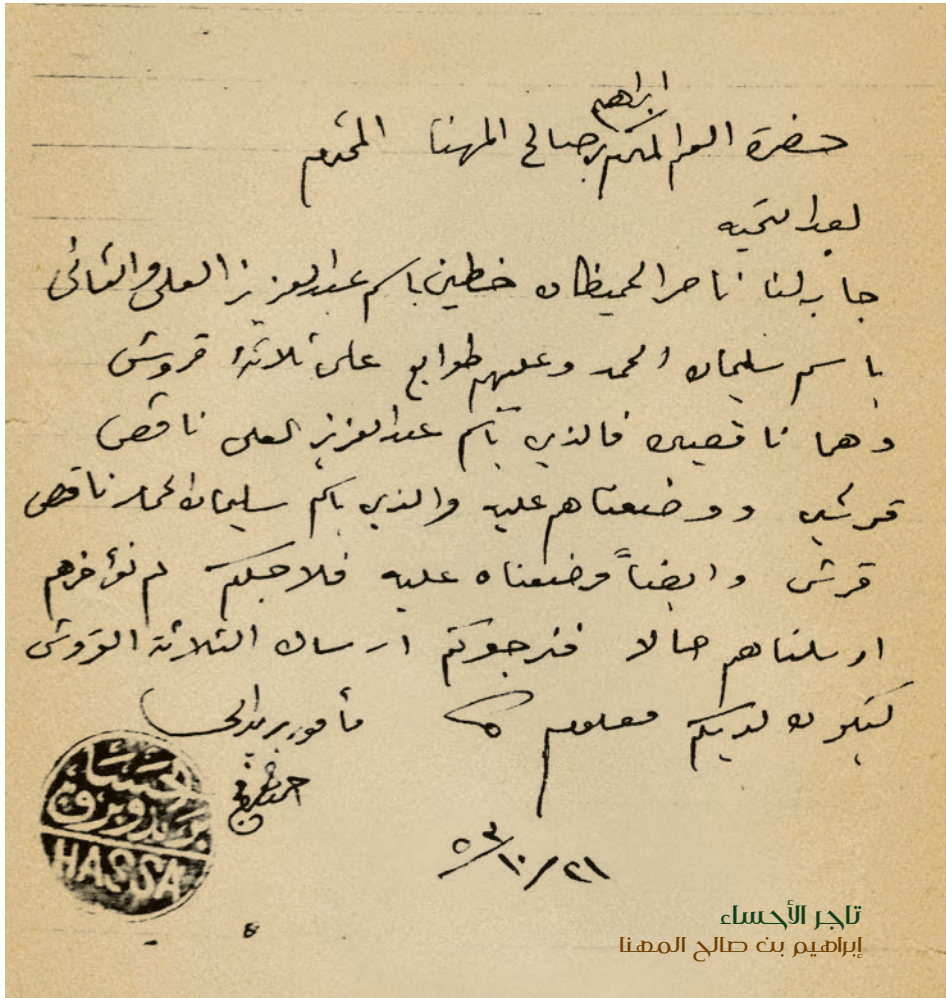 ابراهيم
حضرة العم المكرم بن صالح المهنا المحترم
بعد التحيه
جابه لنا ناصر الحميظان خطين باسم عبدالعزيز العلي والثاني
باسم سليمان الحمد وعليهم طوابع على ثلاثة قروش
وهما ناقصين فالذي باسم عبدالعزيز العلي ناقص
قرشين ووضعناهم عليه والذي باسم سليمان الحمد ناقص
قرش وايضاً وضعناه عليه فلاجلكم لم نؤاخرهم
ارسلناهم حالا فنرجوكم ارسال الثلاثة القروش
ليكون لديكم معلوم
مأمور بريد الحسا
احمد
حسا
برق
HASSA
٢١/١٠/٥٣
تاجر الأحساء
إبراهيم بن صالح المهنا